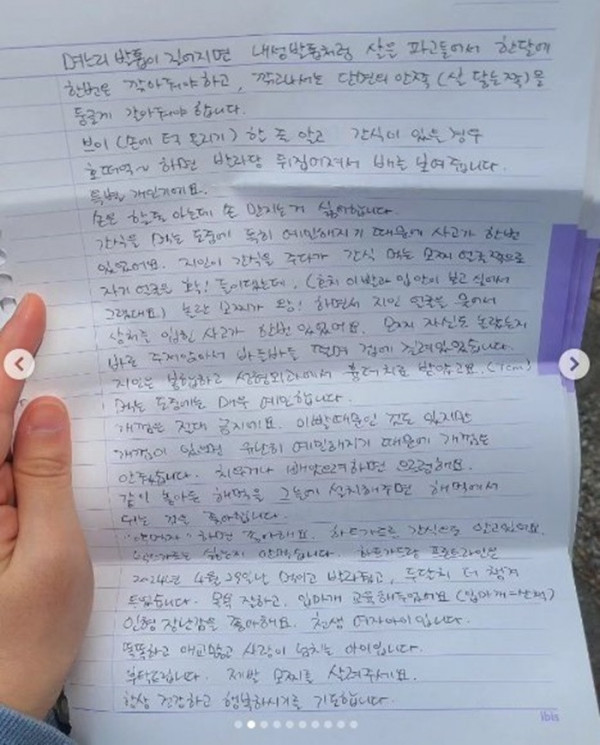 며느리 발톱이 길어지면 내성발톱처럼 살을 파고들어서 한달에
한번은 깎아줘야하고, 깎고나서는 단면의 안쪽 (살 닿는쪽)을
둥글게 갈아줘야 합니다.
브이 (손에 턱 올리기) 할 줄 알고 간식이 있을 경우
호떡~ 하면 발라당 뒤집어져서 배를 보여줍니다.
특별 개인기에요.
손은 할줄 아는데 손 만지는거 싫어합니다.
간식을 먹는 도중에 특히 예민해지기 때문에 사고가 한번
있었어요. 지인이 간식을 주다가 간식 먹는 모찌 얼굴쪽으로
자기 얼굴을 확! 들이댔는데, (충치 이빨과 입 안이 보고 싶어서
그랬대요) 놀란 모찌가 왕! 하면서 지인 얼굴을 물어서
상처를 입힌 사고가 한번 있었어요. 모찌 자신도 놀랐는지
바로 주저앉아서 바들바들 떨며 겁에 질려있었습니다.
지인은 봉합하고 성형외과에서 흉터치료 받았고요. (1cm)
먹는 도중에는 매우 예민합니다.
개껌은 절대 금지에요. 이빨때문인 것도 있지만
개껌이 있으면 유난히 예민해지기 때문에 개껌은
안주었습니다. 치우거나 뺏으려하면 으르렁해요.
같이 놓아둔 해먹을 그늘에 설치해주면 해먹에서
쉬는 것을 좋아합니다.
하면 좋아해요. 하트가드를 간식으로 알고있어요.
싫은지 안먹습니다. 하트가드랑 프론트라인은
2024년 4월 29일날 먹이고 발라줬고, 두달치 더 챙겨
두었습니다. 목욕 잘하고, 입마개 교육해두었어요 (입마개=산책)
인형 장난감을 좋아해요. 천생 여자아이입니다.
똑똑하고 애교많고 사랑이 넘치는 아이입니다.
부탁드립니다. 제발 모찌를 살려주세요.
항상 건강하고 행복하시기를 기도합니다.
ibis